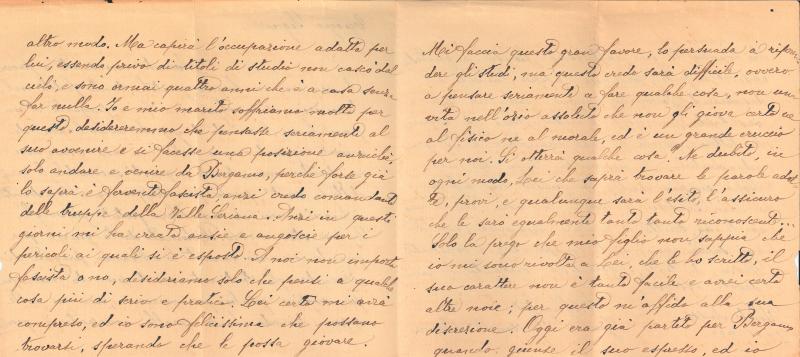 altro modo. Ma capirà l'occupazione adatta per
lui, essendo privo di titoli di studio non casca dal
cielo, e sono ormai quattro anni che è a casa senza
far nulla. Io e mio marito soffriamo molto per
questo, desidereremmo che pensasse seriamente al
suo avvenire e si facesse una posizione anzichè,
solo andare e venire da Bergamo, perchè forse già
lo saprà è fervente fascista, anzi credo comandante
delle truppe della Valle Seriana. Anzi in questi
giorni mi ha creato ansie e angoscie per i
pericoli ai quali si è esposto. A noi non importa
fascista o no, desideriamo solo che pensi a qualche
cosa più di serio e pratico. Lei certo mi avrà
compreso, ed io sono felicissima che possano
trovarsi, sperando che le possa giovare.
Mi faccia questo gran favore, lo persuada a ripren
dere gli studi, ma questo credo sarà difficile, ovvero
a pensare seriamente a fare qualche cosa, non una
vita nell'ozio assoluto che non gli giova certo ne
al fisico ne al morale, ed è un grande cruccio
per noi. Si otterrà qualche cosa? Ne dubito, in
ogni modo, Lei che saprà trovare le parole adat
te, provi, e qualunque sarà l'esito, l'assicuro
che le sarò egualmente tanto tanto riconoscente...
Solo la prego che mio figlio non sappia che
io mi sono rivolta a Lei, che le ho scritto, il
suo carattere non è tanto facile e avrei certo
altre noie; per questo m'affido alla sua
discrezione. Oggi era già partito per Bergamo
quando giunse il suo espresso, ed io